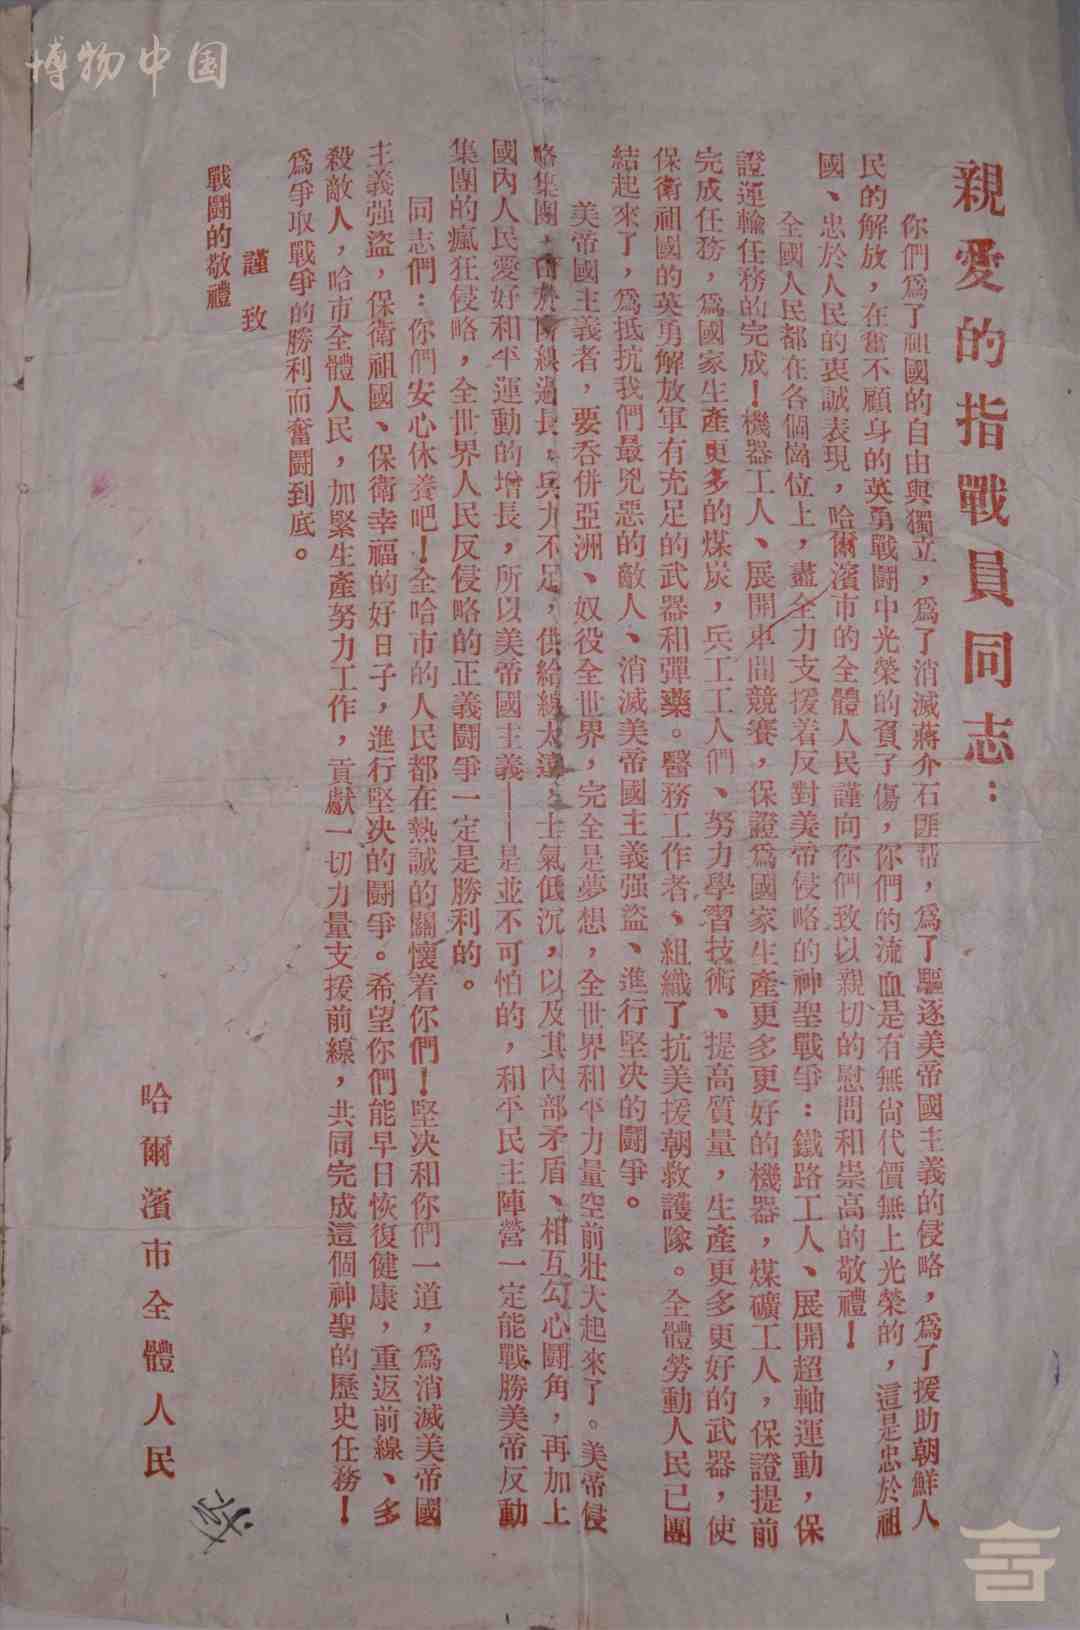 博物中国
親愛的指戰員同志：
你們爲了祖國的自由與獨立，爲了消滅蔣介石匪幫，爲了驅逐美帝國主義的侵略，爲了援助朝鮮人
民的解放，在奮不顧身的英勇戰鬪中光榮的負了傷，你們的流血是有無尙代價無上光榮的，這是忠於祖
國、忠於人民的衷誠表現，哈爾濱市的全體人民謹向你們致以親切的慰問和崇高的敬禮！
全國人民都在各個崗位上，盡全力支援着反對美帝侵略的神聖戰爭：鐵路工人、展開超軸運動，保
證運輸任務的完成！機器工人、展開車間競賽，保證爲國家生產更多更好的機器，煤礦工人，保證提前
完成任務，爲國家生產更多的煤炭，兵工工人們、努力學習技術、提高質量，生產更多更好的武器，使
保衛祖國的英勇解放軍有充足的武器和彈藥。醫務工作者、組織了抗美援朝救護隊。全體勞動人民已團
結起來了，爲抵抗我們最兇惡的敵人、消滅美帝國主義强盜、進行堅決的鬪爭。
美帝國主義者，要吞併亞洲、奴役全世界，完全是夢想，全世界和平力量空前壯大起來了。美帝侵
略集團，由於陣線過長、兵力不足，供給線太遠，士氣低沉，以及其內部矛盾、相互勾心鬪角，再加上
國內人民愛好和平運動的增長，所以美帝國主義——是並不可怕的，和平民主陣營一定能戰勝美帝反動
集團的瘋狂侵略，全世界人民反侵略的正義鬪爭一定是勝利的。
同志們：你們安心休養吧！全哈市的人民都在熱誠的關懷着你們！堅決和你們一道，爲消滅美帝國
主義强盜，保衛祖國、保衛幸福的好日子，進行堅决的鬪爭。希望你們能早日恢復健康，重返前線、多
殺敵人，哈市全體人民，加緊生產努力工作，貢獻一切力量支援前線，共同完成這個神聖的歷史任務！
爲爭取戰爭的勝利而奮鬪到底。
謹致
戰鬪的敬禮
哈爾濱市全體人民